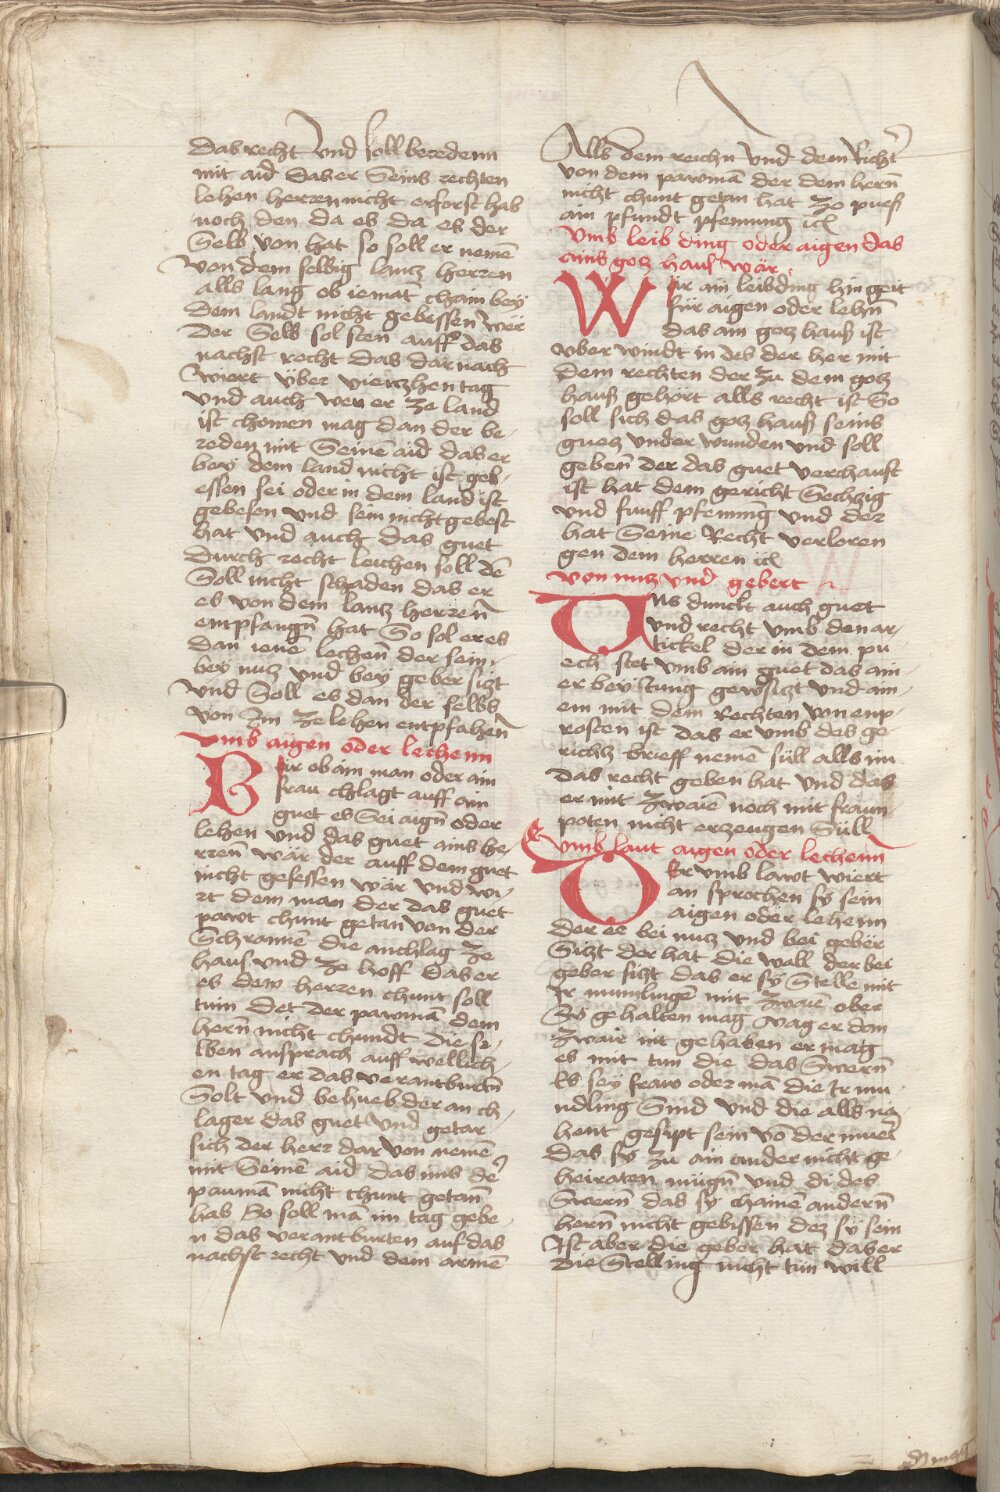 das recht vnd soll beredenn
mit aid das er Seins rechten
lehen herren nicht erforst hab
noch den da es da es der
Selb von hat so soll er nemē
von dem selbig lantz herren
alls lang ob iemat chain bey
dem landt nicht gesessen wer
der Selb sol sten auff das
nachst recht das dar nach
wiert über viertzhen tag
vnd auch wen er ze land
ist chomen mag dan der be-
reden mit Seinē aid das er
bey dem land nicht ist ges-
essen sei oder in dem land ist
gebesen vnd sein nicht gebest
hat vnd auch das guet
durch recht leichen soll dē
Soll nicht schaden das er
es von dem lantz herrenn̄
entpfangn̄ hat So sol er es
dan ienē lechenn̄ der sein-
bey nutz vnd bey geber sizt
vnd Soll es dan der selbs
von Im ze lehen entpfahen̄
vmb aigen oder lechenn
Bir ob ain man oder ain
frau chlagt auff ain
guet es Sei aign̄ oder
lehen vnd das guet ains he-
rrenn̄ wär der auff dem guet
nicht gesessen wär vnd wi-
rt dem man der das guet
pawt chunt getan von der
Schrannē die anchlag ze
haus vnd ze hoff das er
es dem herren chunt soll
tuin det der pawmā dem
hern̄ nicht chundt die se-
lben ansprach auff wellich-
en tag er das verantburtn̄
Solt vnd behueb der an ch-
lager das guet vnd getar
sich der herr dar von nemē
mit Seinē aid das ims de'
paumā nicht chunt getann̄
hab So soll mā im tag gebe-
n das verantburten auf das
nachst recht vnd dem armē
Alls dem reichn vnd dem Richt'
von dem pawmā der dem hern̄
nicht chunt getan hat zo pues
ain pfundt pfenning ꝛc
vmb leib ding oder aigen das
ains gotz haus wär
Wir ain leibding hin geit
für aigen oder lehn̄
das ain gotz hauß ist
vber windt in des der her mit
dem rechten der zu dem gotz
hauß gehort alls recht ist So
soll sich das gotz hauß seins
guetz vnder wunden vnd soll
geben̄ der das guet verchauft
ist hat dem gericht Sechzig
vnd funff pfenning vnd der
hat Seine Recht verloren
gen dem herren ꝛc
von nutz vnd gebert
Uns dunckt auch guet
vnd recht vmb den ar-
tickel der in dem pu
ech stet vmb ain guet das ain-
er bey stung gewsizt vnd ain-
em mit dem Rechten von enp-
rosten ist das er vmb des ge
richtz brieff nemē süll alls im
das recht geben hat vnd das
er mit zwaiē noch mit fraun
poten nicht erzeugen Süll
vmb laut aigen oder lechenn̄
Er vmb lawt wiert
an sprochen sy sein
aigen oder lehenn
der ee bei nutz vnd bei geber
Sizt der hat die wall der bei
geber sizt das er sy Stelle mit
Ir mumlingē mit zwaiē ober
Sy gehalten mag Mag er dan
zwair nit gehaben er mag
es mit tun die das Swern̄
Es sey fraw oder mā die Ir mu-
mdling Sind vnd die alls na
hent gesipt sein vō der muet'
das sy zu ain ander nicht ge-
heiraten mugn̄ vnd di des
Swern̄ das sy chainē andern̄
hern̄ nicht gebissen dez sy sein
Ist aber die geber hat das er
die Stelling nicht tün will